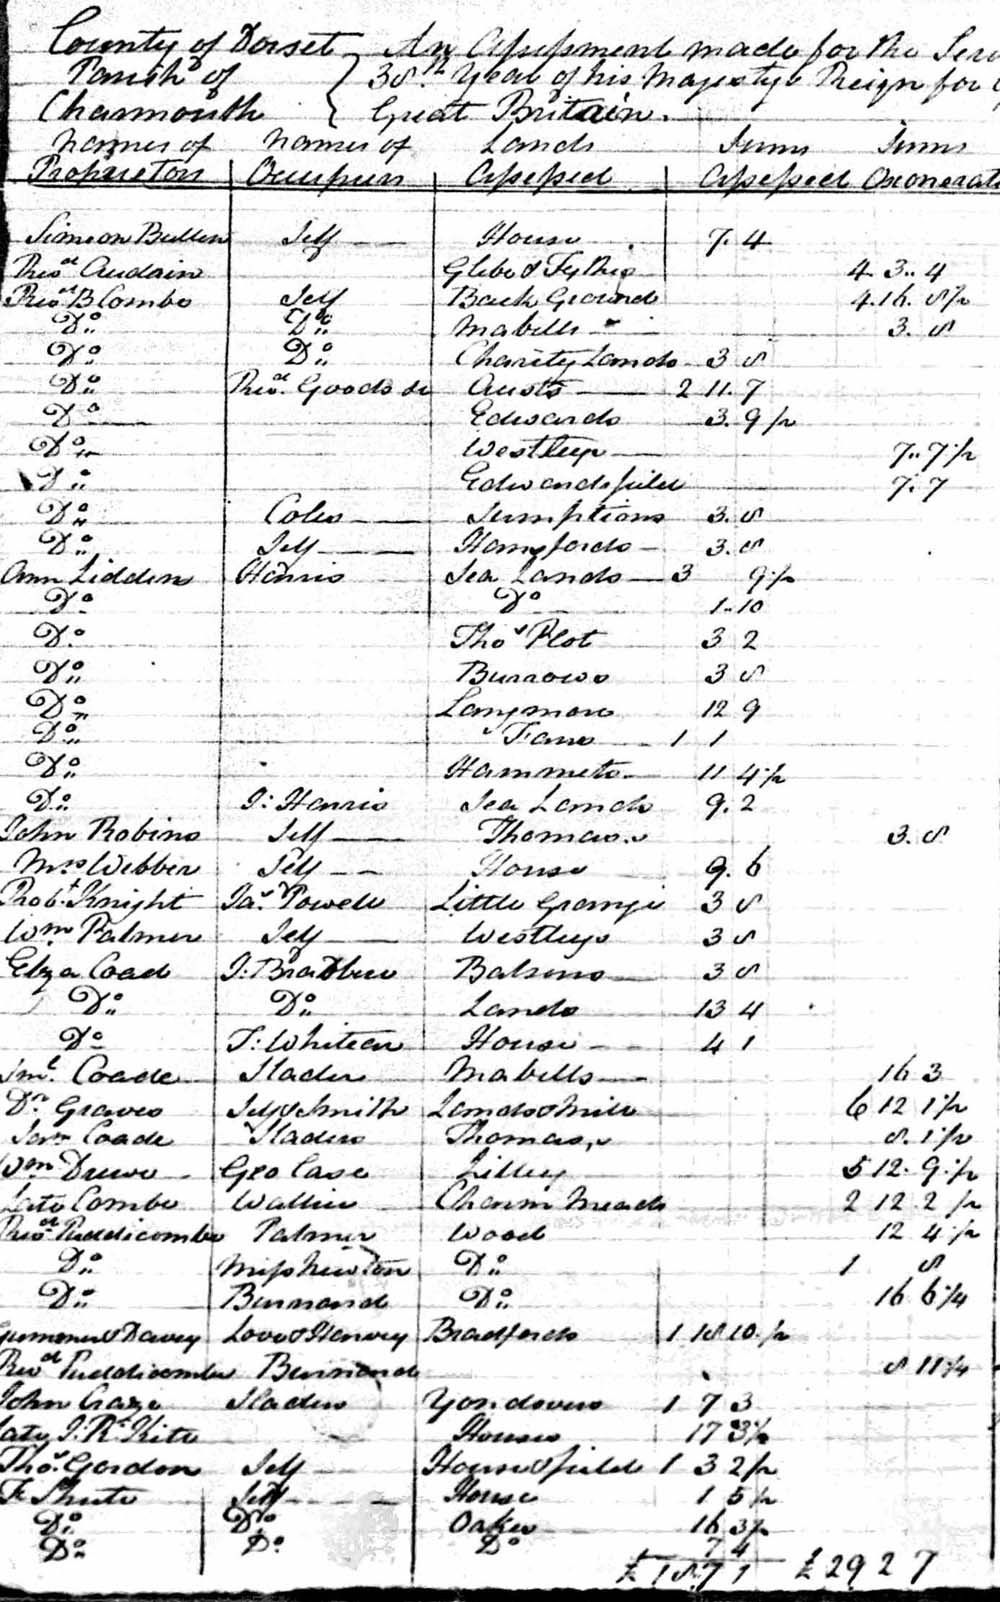 County of Dorset } An Assessment made for the Serv
Parish of } 38th Year of his Majestys Reign for
Charmouth { Great Britain.
Names of Names of Lands Sums Sums
Proprietors Occupiers Assessed Assessed Exonerate
Simeon Bullen Self House 7. 4
Revd. Audain Glebe & Tythes 4 3.. 4
Revd. B Combe Self Back Ground 4. 16. 8½
Do. Do. Mabells 3. 8
Do. Do. Charity Lands 3 8
Do. Revd. Goods Austs 2 11. 7
Do Edwards 3. 9½
Do. 7.. 7½
Do. Edwardsfield 7. 7
Do. Coles Sumptions 3. 8
Do. Self Hansfords 3. 8
Ann Liddon Harris Sea Lands 3 9½
Do Do 1.. 10
Do. Thos Plot 3 2
Do. Burrows 3 8
Do. Langmore 12 9
Do. Fans 1 1
Do. Hammets 11 4½
Do. I: Harris Sea Lands 9. 2
John Robins Self Thomas.s 3. 8
Mrs Webber Self House 9. 6
Robt. Knight Jas. Powell Little Grange 3 8
Wm. Palmer Self Westleys 3 8
Elza Coad I: Bradbeer Balsons 3 8
Do. Do. Lands 13 4
Do T: Whitear House 4 1
Coade Slader Mabells 16 3
Dr. Graves Self & Smith Lands & Mill 6 12 1½
Coade Sladers Thomas.s 8. 1½
Wm Druve Geo Case Lilley 5 12. 9½
Late Combe Wallis Charm Mead 2 12 2½
Revd. Puddicombe Palmer Wood 12 4½
Do. Miss Newton Do. 1 8
Do. Burnand Do. 16 6¼
& Davey Love & Harvey Bradfords 1 18 10½
Revd Puddicombe Burnand 8 11¼
John Craze Sladers Yondovers 1 7 3
Late I: R: Kite Houses 17 3½
Thos. Gordon Self House & field 1 3 2½
F Shute Self House 1 5½
Do. Do Oakes 16 3½
Do. Do. Do 7 4
£ 18. 7 1 £ 29 2 7